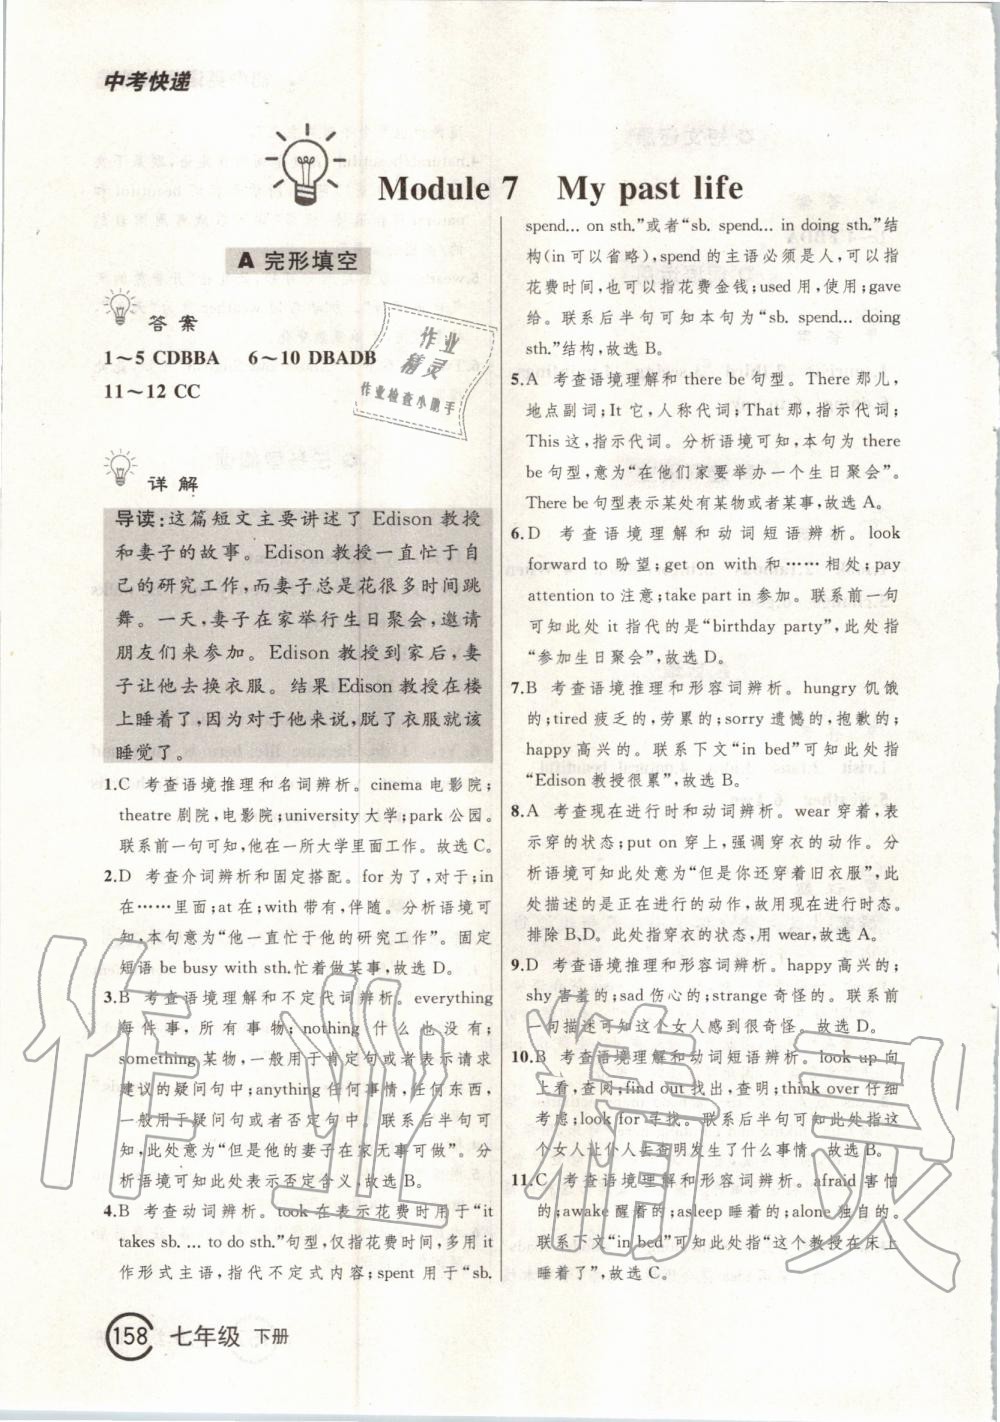 中考快递
Module 7 My past life
A 完形填空
答案
1～5 CDBBA 6～10 DBADB
11～12 CC
作业
精灵
作业检查小助手
详解
导读:这篇短文主要讲述了 Edison 教授
和妻子的故事。Edison 教授一直忙于自
己的研究工作,而妻子总是花很多时间跳
舞。一天,妻子在家举行生日聚会,邀请
朋友们来参加。Edison 教授到家后,妻
子让他去换衣服。结果 Edison 教授在楼
上睡着了,因为对于他来说,脱了衣服就该
睡觉了。
1.C 考查语境推理和名词辨析。cinema 电影院;
theatre 剧院,电影院;university 大学;park 公园。
联系前一句可知,他在一所大学里面工作。故选 C。
2.D 考查介词辨析和固定搭配。for 为了,对于;in
在……里面;at 在;with 带有,伴随。分析语境可
知,本句意为“他一直忙于他的研究工作”。固定
短语 be busy with sth.忙着做某事,故选 D。
3.B 考查语境理解和不定代词辨析。everything
每件事,所有事物;nothing 什么也没有;
something 某物,一般用于肯定句或者表示请求
建议的疑问句中;anything 任何事情,任何东西,
一般用于疑问句或者否定句中。联系后半句可
知,此处意为“但是他的妻子在家无事可做”。分
析语境可知此处表示否定含义,故选 B。
4.B 考查动词辨析。took 在表示花费时用于“it
takes sb. … to do sth.”句型,仅指花费时间,多用 it
作形式主语,指代不定式内容;spent 用于“sb.
spend… on sth.”或者“sb. spend… in doing sth.”结
构(in 可以省略),spend 的主语必须是人,可以指
花费时间,也可以指花费金钱;used 用,使用;gave
给。联系后半句可知本句为“sb. spend… doing
sth.”结构,故选 B。
5.A 考查语境理解和 there be 句型。There 那儿,
地点副词;It 它,人称代词;That 那,指示代词;
This 这,指示代词。分析语境可知,本句为 there
be 句型,意为“在他们家要举办一个生日聚会”。
There be 句型表示某处有某物或者某事,故选 A。
6.D 考查语境理解和动词短语辨析。look
forward to 盼望;get on with 和……相处;pay
attention to 注意;take part in 参加。联系前一句
可知此处 it 指代的是“birthday party”,此处指
“参加生日聚会”,故选 D。
7.B 考查语境推理和形容词辨析。hungry 饥饿
的;tired 疲乏的,劳累的;sorry 遗憾的,抱歉的;
happy 高兴的。联系下文“in bed”可知此处指
“Edison 教授很累”,故选 B。
8.A 考查现在进行时和动词辨析。wear 穿着,表
示穿的状态;put on 穿上,强调穿衣的动作。分
析语境可知此处意为“但是你还穿着旧衣服”,此
处描述的是正在进行的动作,故用现在进行时态。
排除 B、D。此处指穿衣的状态,用 wear,故选 A。
9.D 考查语境推理和形容词辨析。happy 高兴的;
shy 害羞的;sad 伤心的;strange 奇怪的。联系前
一句描述可知这个女人感到很奇怪。故选 D。
10.B 考查语境理解和动词短语辨析。look up 向
上看,查阅;find out 找出,查明;think over 仔细
考虑;look for 寻找。联系后半句可知此处指这
个女人让仆人去查明发生了什么事情。故选 B。
11.C 考查语境理解和形容词辨析。afraid 害怕
的;awake 醒着的;asleep 睡着的;alone 独自的。
联系下文“in bed”可知此处指“这个教授在床上
睡着了”,故选 C。
158 七年级 下册
作业精灵